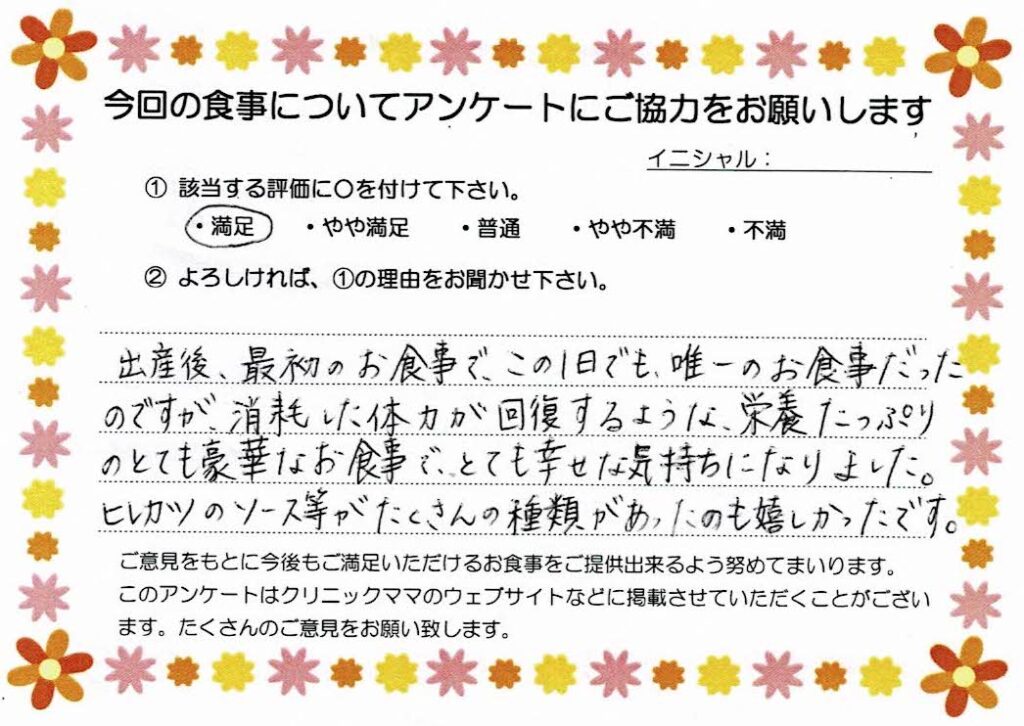 今回の食事についてアンケートにご協力をお願いします
イニシャル：
① 該当する評価に〇を付けて下さい。
・満足　・やや満足　・普通　・やや不満　・不満
② よろしければ、①の理由をお聞かせ下さい。
出産後、最初のお食事で、この1日でも、唯一のお食事だった
のですが、消耗した体力が回復するような、栄養たっぷり
のとても豪華なお食事で、とても幸せな気持ちになりました。
ヒレカツのソース等がたくさんの種類があったのも嬉しかったです。
ご意見をもとに今後もご満足いただけるお食事をご提供出来るよう努めてまいります。
このアンケートはクリニックママのウェブサイトなどに掲載させていただくことがござい
ます。たくさんのご意見をお願い致します。